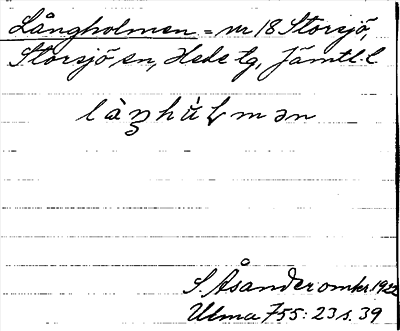 Långholmen = nr 18 Storsjö,
Storsjö sn, Hede tg, Jämtl. l
S. Åsander omkr. 1922
Ulma 755: 23 s. 39